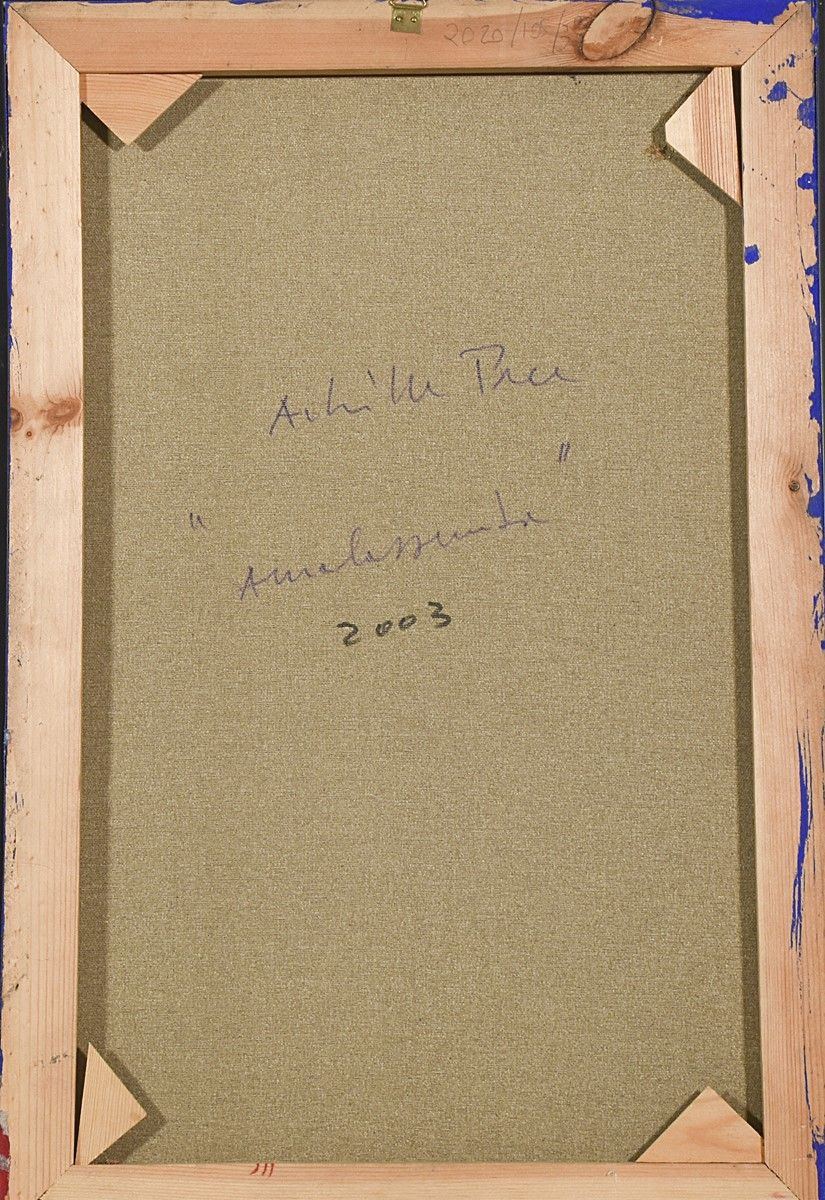 2020
Achille Pace
" Amalassunta "
2003